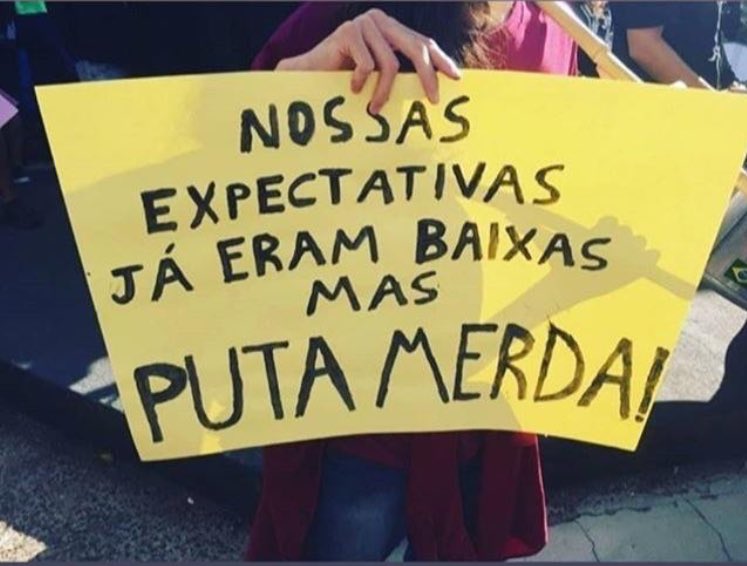 NOSSAS
EXPECTATIVAS
JÁ ERAM BAIXAS
MAS
PUTA MERDA!